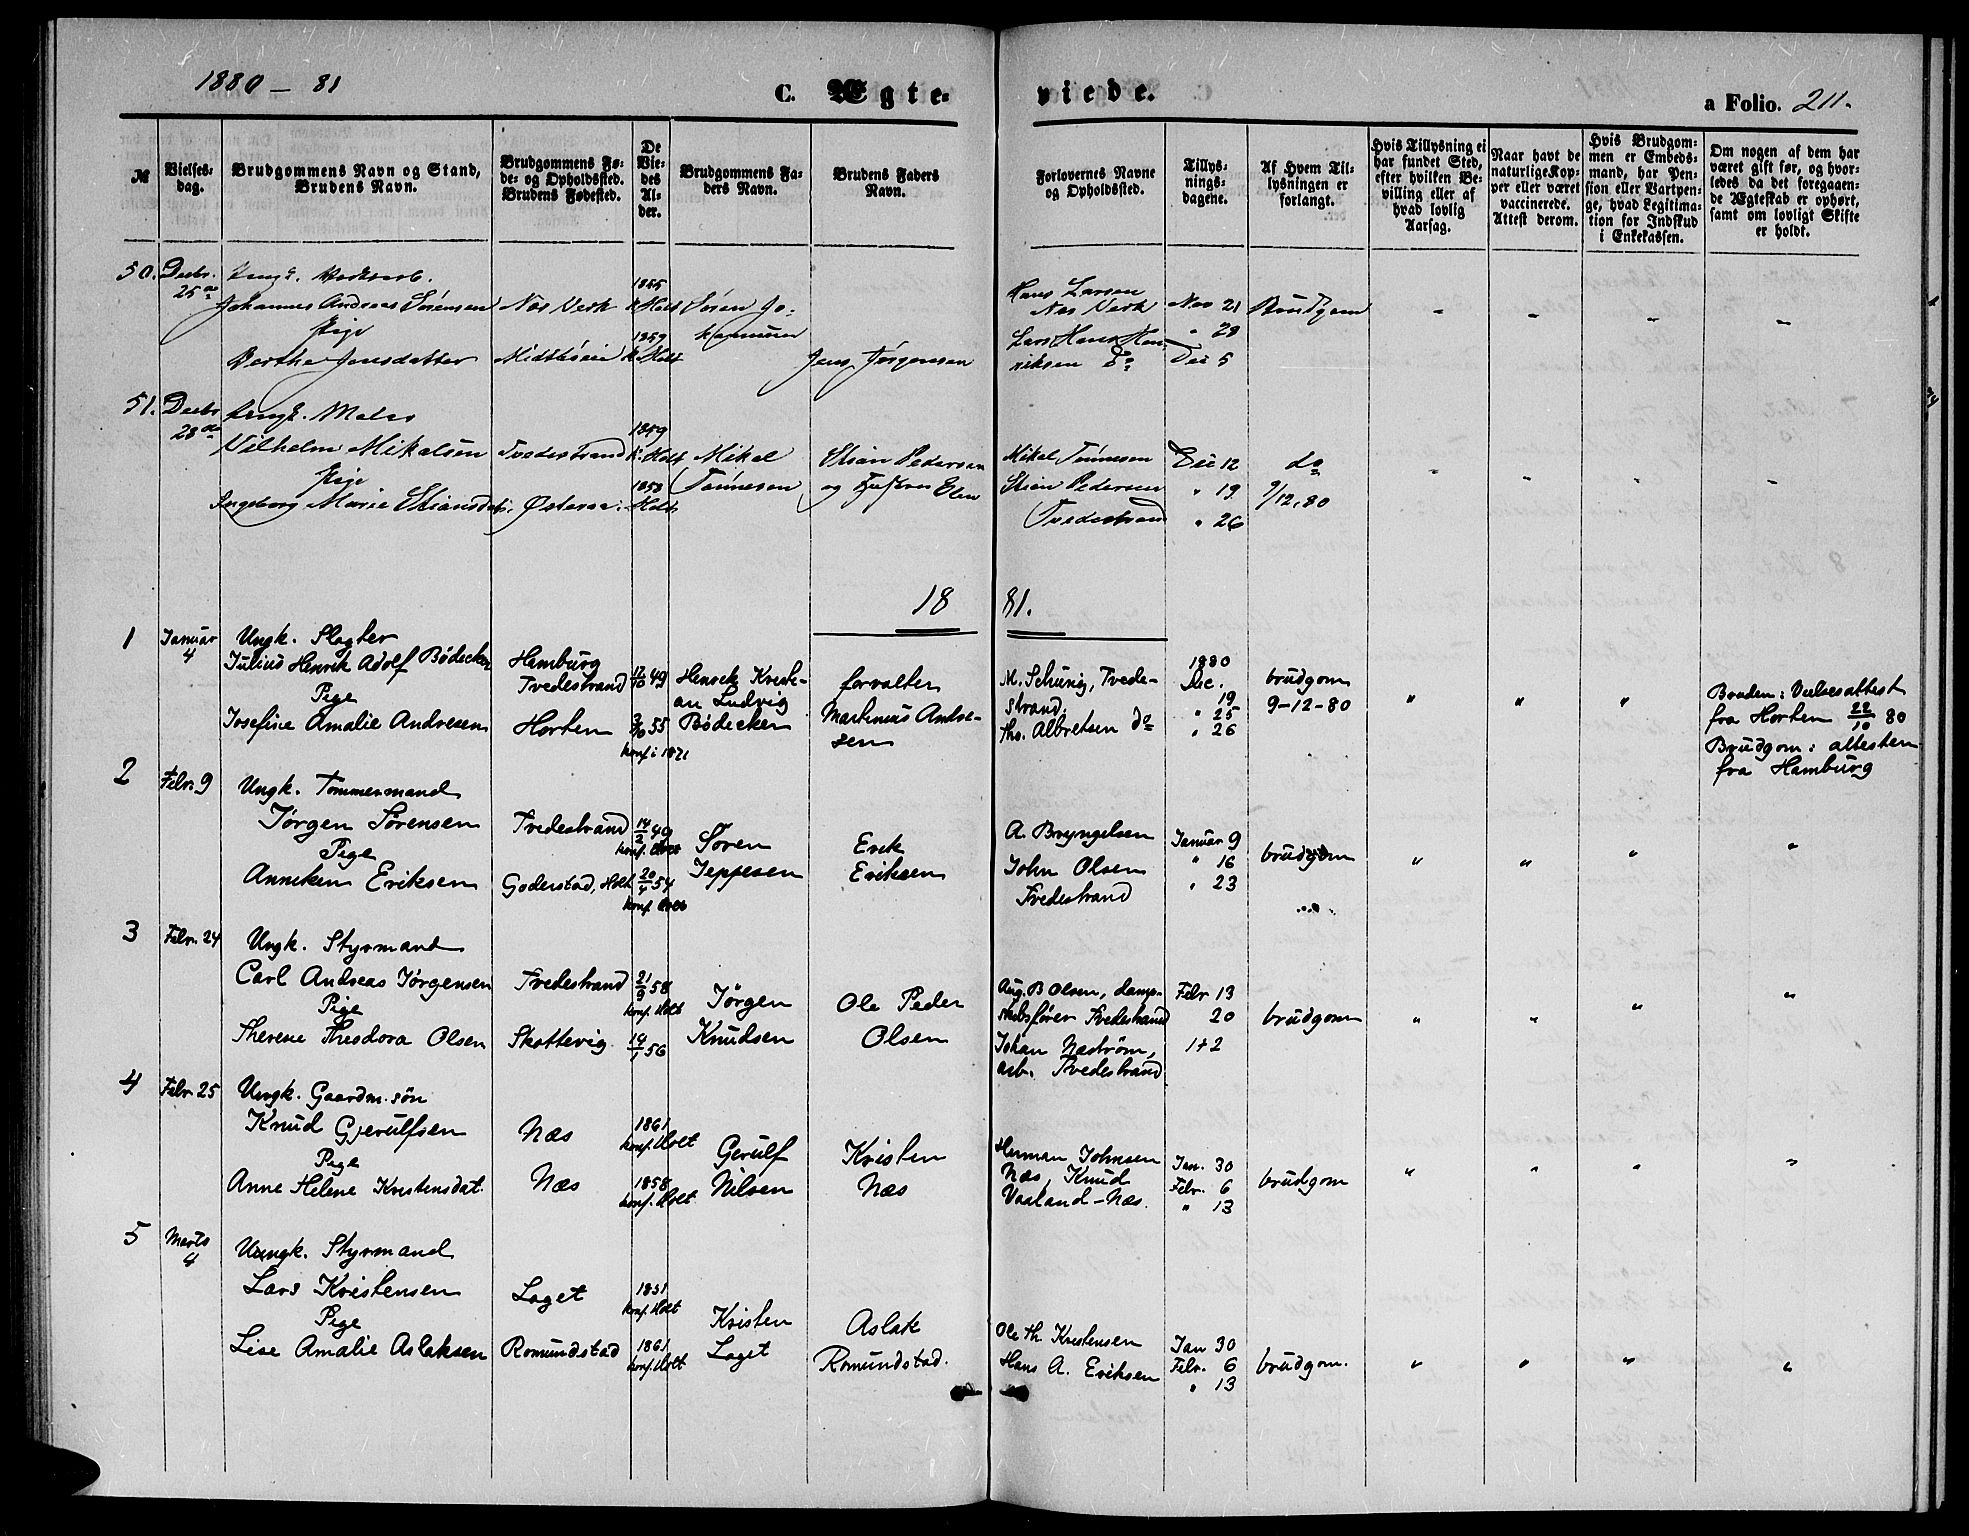 1880 - 81
C. Ægteviede.
a Folio. 211.
№
Vielsesdag.
Brudgommens Navn og Stand, Brudens Navn.
Brudgommens Føde- og Opholdssted. Brudens Fødested.
De Viedes Alder.
Brudgommens Faders Navn.
Brudens Faders Navn.
Forlovernes Navne og Opholdssted.
Tillysningsdagene.
Af Hvem Tillysningen er forlangt.
Hvis Tillysning ei har fundet Sted, efter hvilken Bevilling eller af hvad lovlig Aarsag.
Naar havt de naturlige Kopper eller været vaccinerede. Attest derom.
Hvis Brudgommen er Embedsmand, har Pension eller Vartpenge, hvad Legitimation for Indskud i Enkekassen.
Om nogen af dem har været gift før, og hvorledes da det foregaaende Ægteskab er ophørt, samt om lovligt Skifte er holdt.
50. Decbr. 25de
Ungk.
Johannes Andreas Sørensen
Pige
Berthe Jensdatter
Næs Verk
1855
k. Holt
1859
k. Holt
Søren Johannesen
Jens Jørgensen
Hans Larsen
Næs Verk
Lars Hans Henriksen Do
Nov 21
" 28
Dec 5
Brudgom
51. Decbr 28de
Ungk. Maler
Vilhelm Mikalsen
Pige
Ingeborg Marie Stiansdat.
Tvedestrand
1859
k. Holt
1858
Holt
Mikal
Tønnesen
Stian Pedersen
og Hustru Elen
Mikal Tønnesen
Stian Pedersen
Tvedestrand
Dec 12
" 19
" 26
do
9/12.80
1881.
1 Januar 4
Ungk. Slagter
Julius Henrik Adolf Bødecker
Pige
Josefine Amalie Andresen
Hamburg
Tvedestrand
Horten
17/10 49
55
konf i 1871
Henrik Kristian Ludvig
Bødecker
forvalter
Martinius Andresen
M. Schunig, Tvedestrand.
Ths. Albretsen do
1880
Dec.
19
" 25
" 26
brudgom
9-12-80
Bruden: Vielsesattest
fra Horten 22/10 80
Brudgom: attesten
fra Hamburg
2 Febr. 9
Ungk. Tømmermand
Jørgen Sørensen
Pige
Anneken Eriksen
Tvedestrand
Goderstad, Holt
14/2 49
konf. Holt
20/1 54
konf. Holt
Søren
Jeppesen
Erik
Eriksen
A. Bryngelsen
John Olsen
Tvedestrand
Januar 9
" 16
" 23
brudgom
3 Febr. 24
Ungk. Styrmand
Carl Andreas Jørgensen
Pige
Therene Theodora Olsen
Tvedestrand
Skottevig
21/9 58
konf. Holt
19/1 56
Jørgen
Knudsen
Ole Peder
Olsen
Aug. B Olsen, dampskibsfører Tvedestrand
Johan Næstrøm,
arb. Tvedestrand
Febr 13
20
1+2
brudgom
4 Febr. 25
Ungk. Gaardm. søn
Knud Gjerulfsen
Pige
Anne Helene Kristensdat.
Næs
Næs
1861
konf. Holt
1858
konf. Holt
Gerulf
Nilsen
Kristen
Næs
Herman Johnsen
Næs, Knud
Vaaland - Næs.
Jan. 30
Febr. 6
" 13
brudgom
5 Marts 4
Ungk. Styrmand
Lars Kristensen
Pige
Lise Amalie Aslaksen
Laget
Romundstad
1851
konf. Holt
1861
konf. Holt
Kristen
Laget
Aslak
Romundstad.
Ole Th. Kristensen
Hans A. Eriksen
Jan 30
Febr. 6
" 13
brudgom.